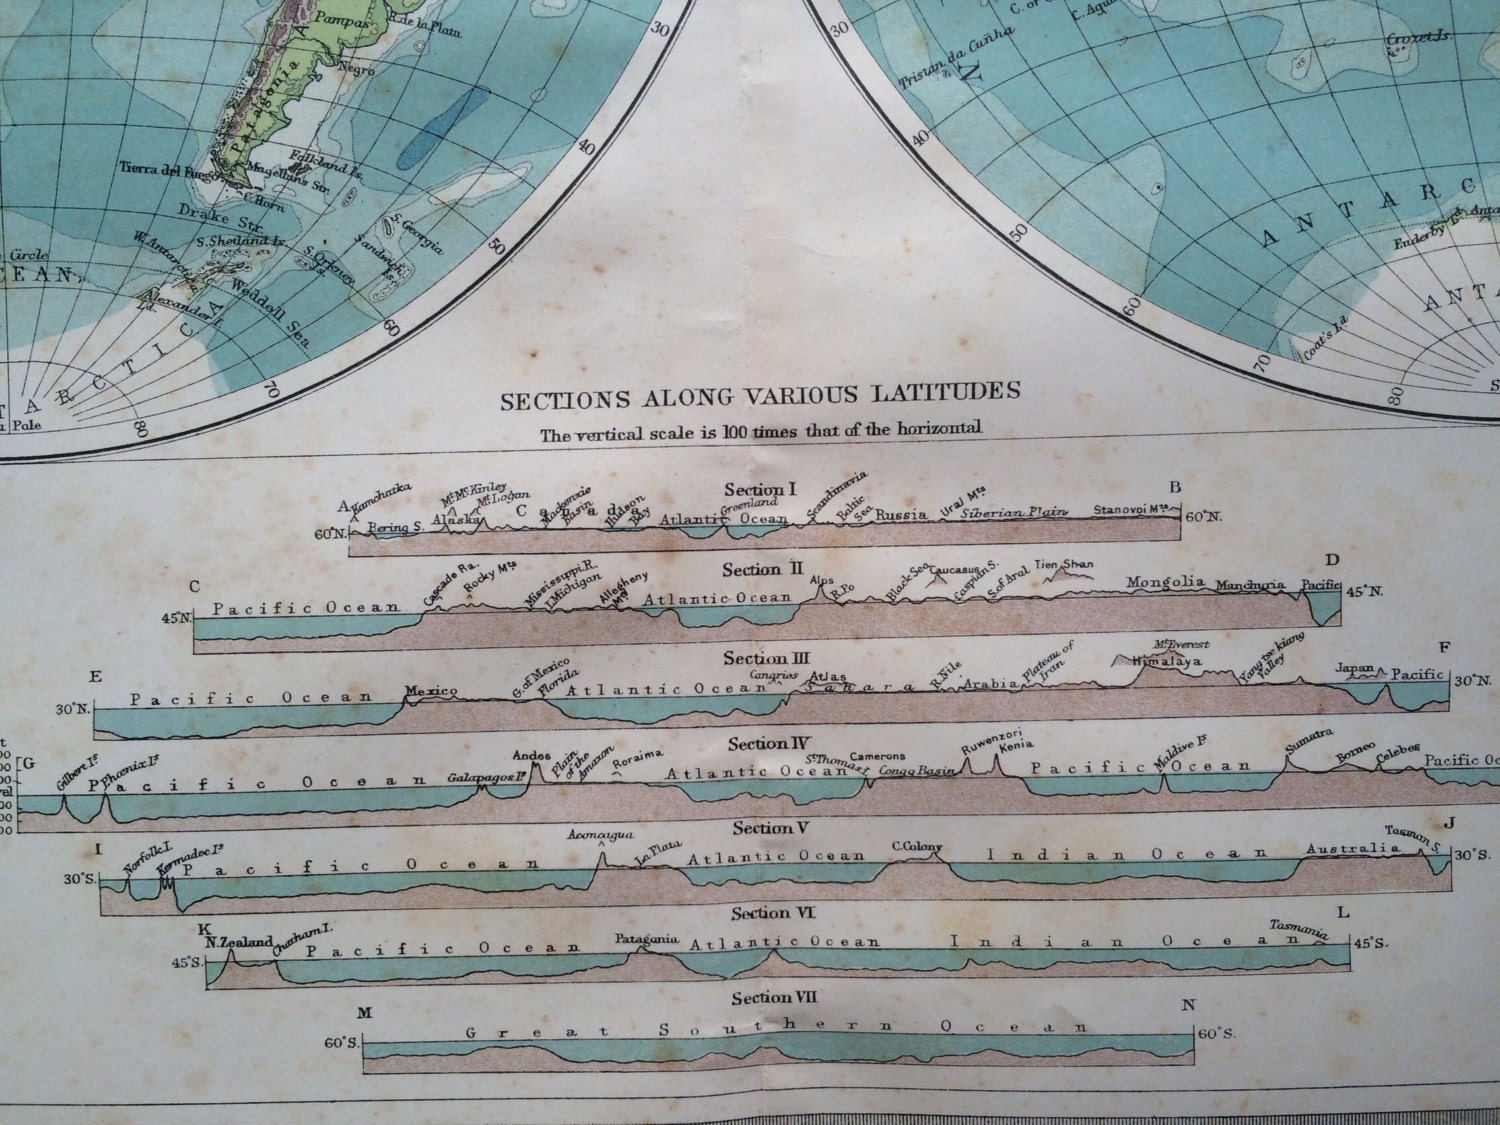 Pampas
R. de la Plata
Negro
Patagonia
30
40
50
60
70
80
Falkland Is.
Tierra del Fuego
Magellan's Str.
C. Horn
Drake Str.
S. Shetland Is.
W. Antarctica
S. Georgia
Sandwich Is.
S. Orkney Is.
Circle
CEAN,
Alexander I. Ld.
Weddell Sea
ARCTICA
Pole
30
40
50
60
70
80
Tristan da Cunha
N
Crozet Is.
ANTARC
Enderby Ld.
ANTA
Coat's Ld.
SECTIONS ALONG VARIOUS LATITUDES
The vertical scale is 100 times that of the horizontal
Section I
A B
Kamchatka Mt. McKinley Mt. Logan Mackenzie Basin Hudson Bay Greenland Scandinavia Baltic Sea Ural Mts.
60°N. Bering S. Alaska Canada Atlantic Ocean Russia Siberian Plain Stanovoi Mts. 60°N.
Section II
C D
Cascade Ra. Rocky Mts. Mississippi R. L. Michigan Allegheny Mts. Alps R. Po Black Sea Caucasus Caspian S. S. of Aral Tien Shan
45°N. Pacific Ocean Atlantic Ocean Mongolia Manchuria Pacific 45°N.
Section III
E F
G. of Mexico Florida Canaries Atlas R. Nile Plateau of Iran Mt. Everest Himalaya Yang tse kiang Valley Japan
30°N. Pacific Ocean Mexico Atlantic Ocean Sahara Arabia Pacific 30°N.
Section IV
G
Gilbert Is. Phœnix Is. Galapagos Is. Andes Plain of the Amazon Roraima St. Thomas I. Camerons Congo Basin Ruwenzori Kenia Maldive Is. Sumatra Borneo Celebes
Pacific Ocean Atlantic Ocean Pacific Ocean Pacific Oc
Section V
I J
Norfolk I. Kermadec Is. Aconcagua La Plata C. Colony Tasman S.
30°S. Pacific Ocean Atlantic Ocean Indian Ocean Australia 30°S.
Section VI
K L
N. Zealand Chatham I. Patagonia Tasmania
45°S. Pacific Ocean Atlantic Ocean Indian Ocean 45°S.
Section VII
M N
60°S. Great Southern Ocean 60°S.